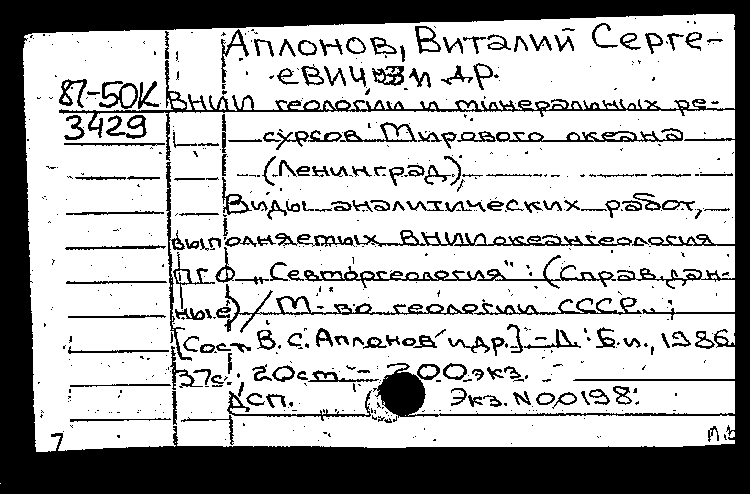 Аплонов, Виталий Серге-
евич и др.
87-50К ВНИИ геологии и минеральных ре-
3429 сурсов Мирового океана
(Ленинград)
Виды аналитических работ,
выполняемых ВНИИокеангеология
ПГО „Севморгеология": (Справ. дан-
ные) / М-во геологии СССР...;
[Сост. В.С. Аплонов и др.] - Л.: Б.и., 1986.
37с.; 20см - 200экз.
ДСП. Экз. N00198.
7